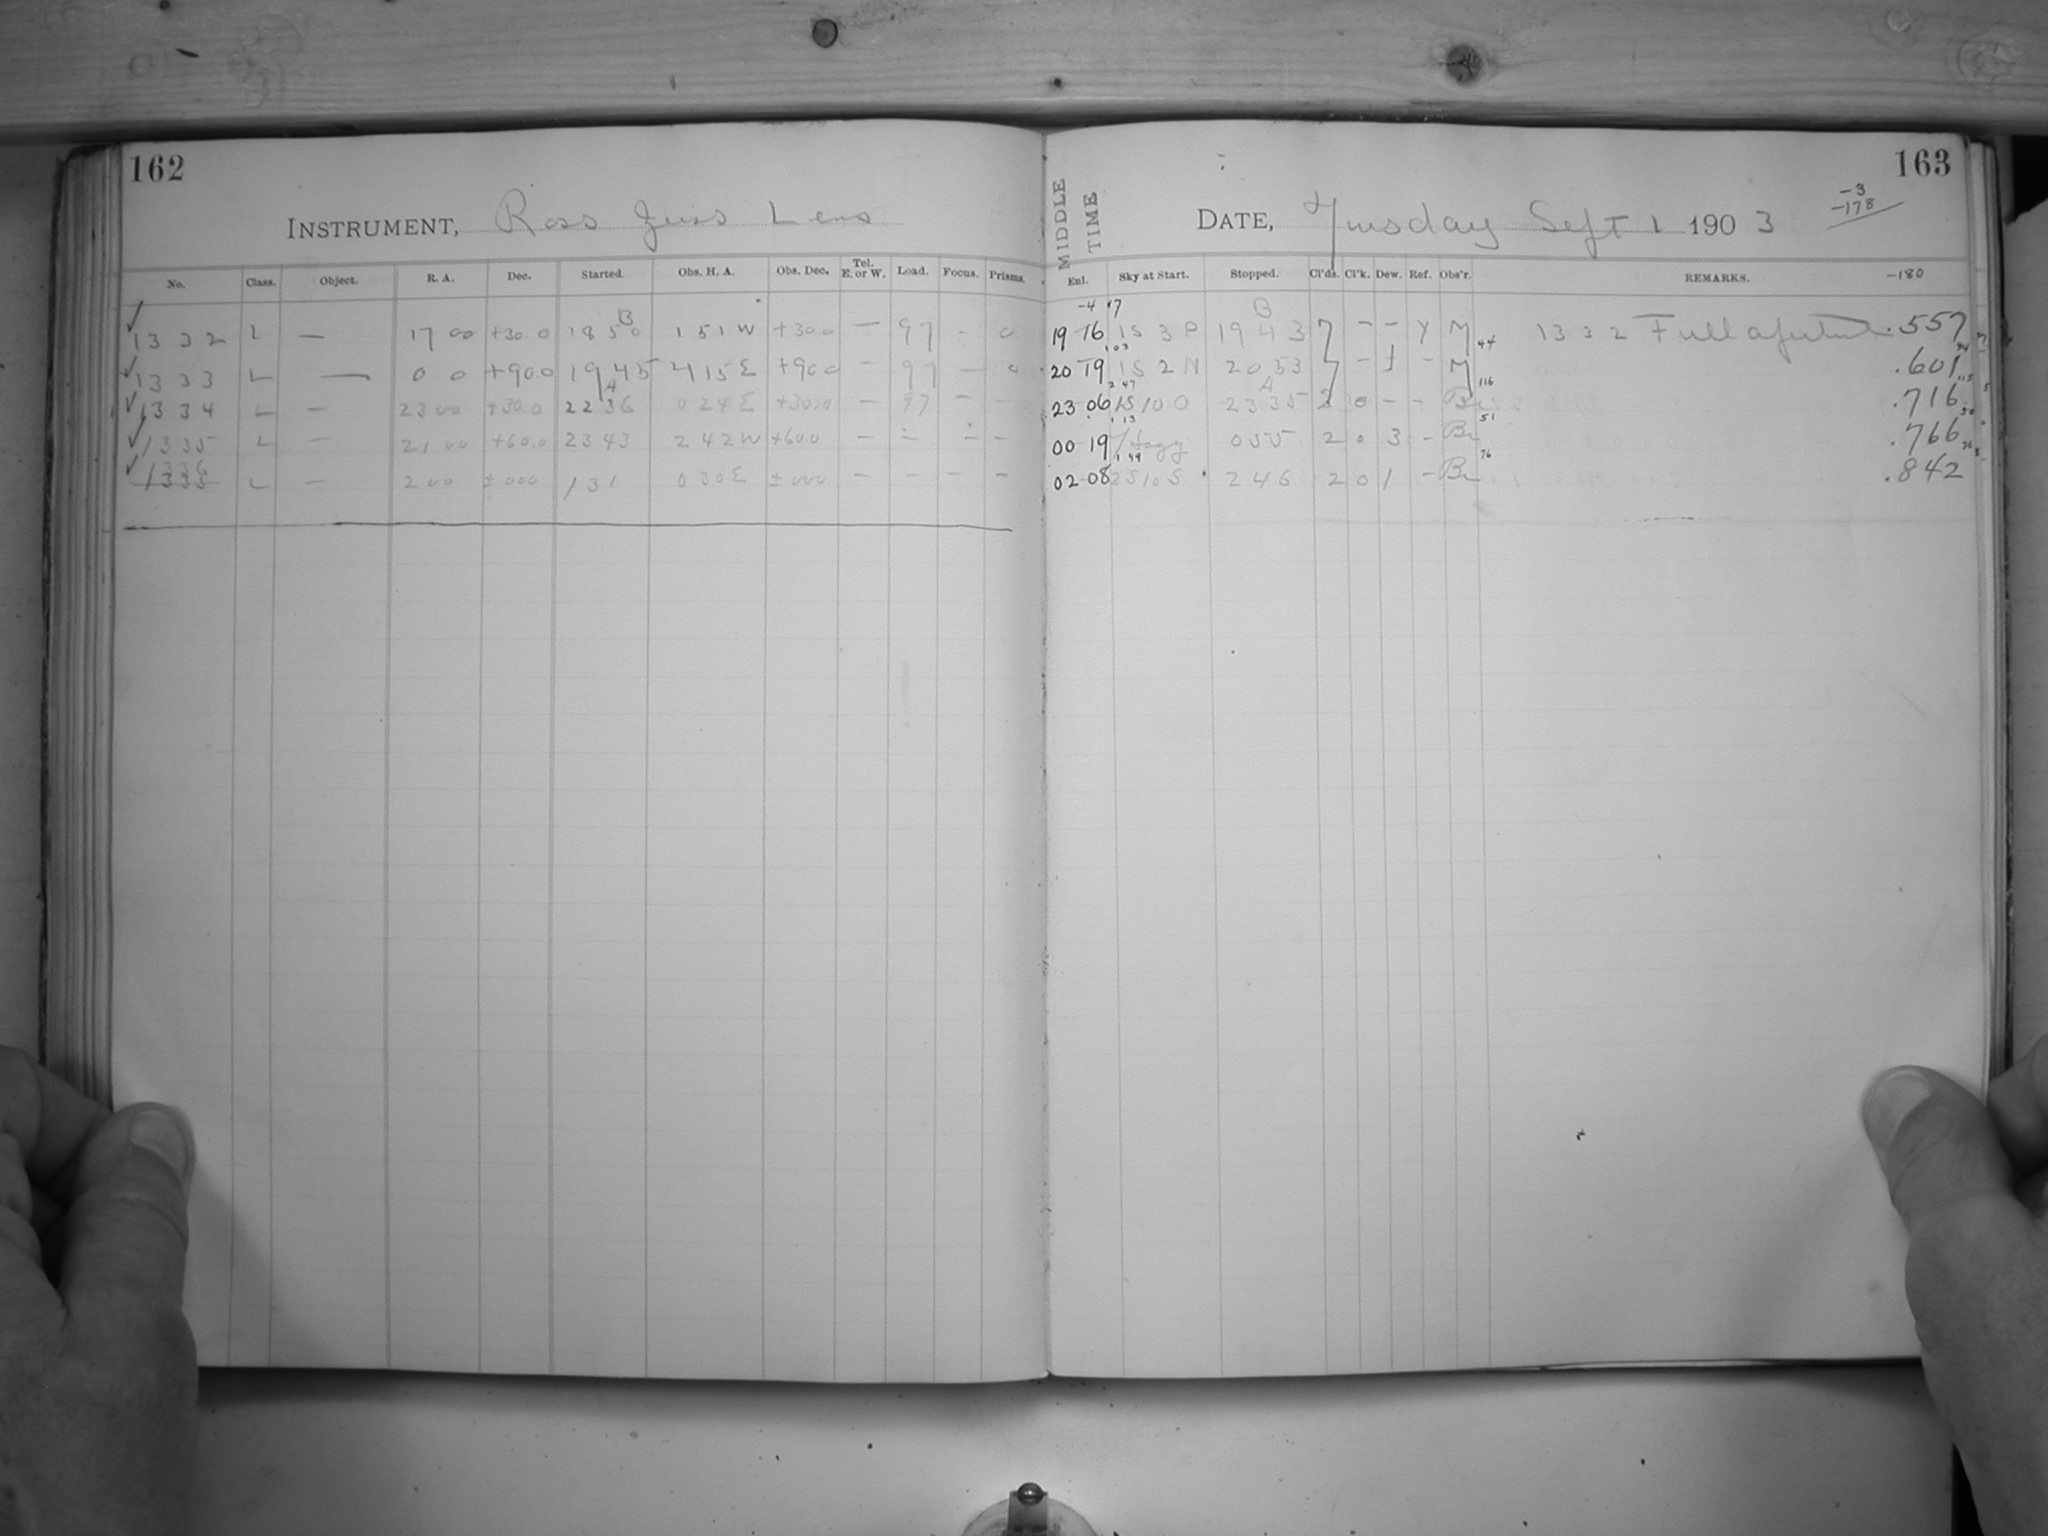 162
INSTRUMENT, Ross Zeiss Lens
No. Class. Object. R. A. Dec. Started. Obs. H. A. Obs. Dec. Tel. E. or W. Load. Focus. Prisms.
B
1332 L — 17 00 +30.0 18 50 1 51 W +30.0 — 97 - 0
1333 L — 0 0 +90.0 19 45 4 15 E +90.0 — 97 — 0
A
1334 L — 23 00 +30.0 22 36 0 24 E +30.0 — 97 — —
1335 L — 21 00 +60.0 23 43 2 42 W +60.0 — — — —
1336
1335 L — 2 00 ±000 1 31 0 30 E ±000 — — — —
163
MIDDLE TIME
DATE, Tuesday Sept 1 1903
-3
-178
Enl. Sky at Start. Stopped. Cl'ds. Cl'k. Dew. Ref. Obs'r. REMARKS. -180
-4 17
B
19 16 1S 3 P 19 43 7 - - Y M 44 1332 Full aperture .557
1 03
20 19 1S 2 N 20 53 7 - 1 - M 116 .601
2 47
A
23 06 1S 10 0 23 35 2 0 - - Br 51 .716
1 13
00 19 Hazy 0 55 2 0 3 - Br 76 .766
1 49
02 08 2S 10 S 2 46 2 0 1 - Br .842